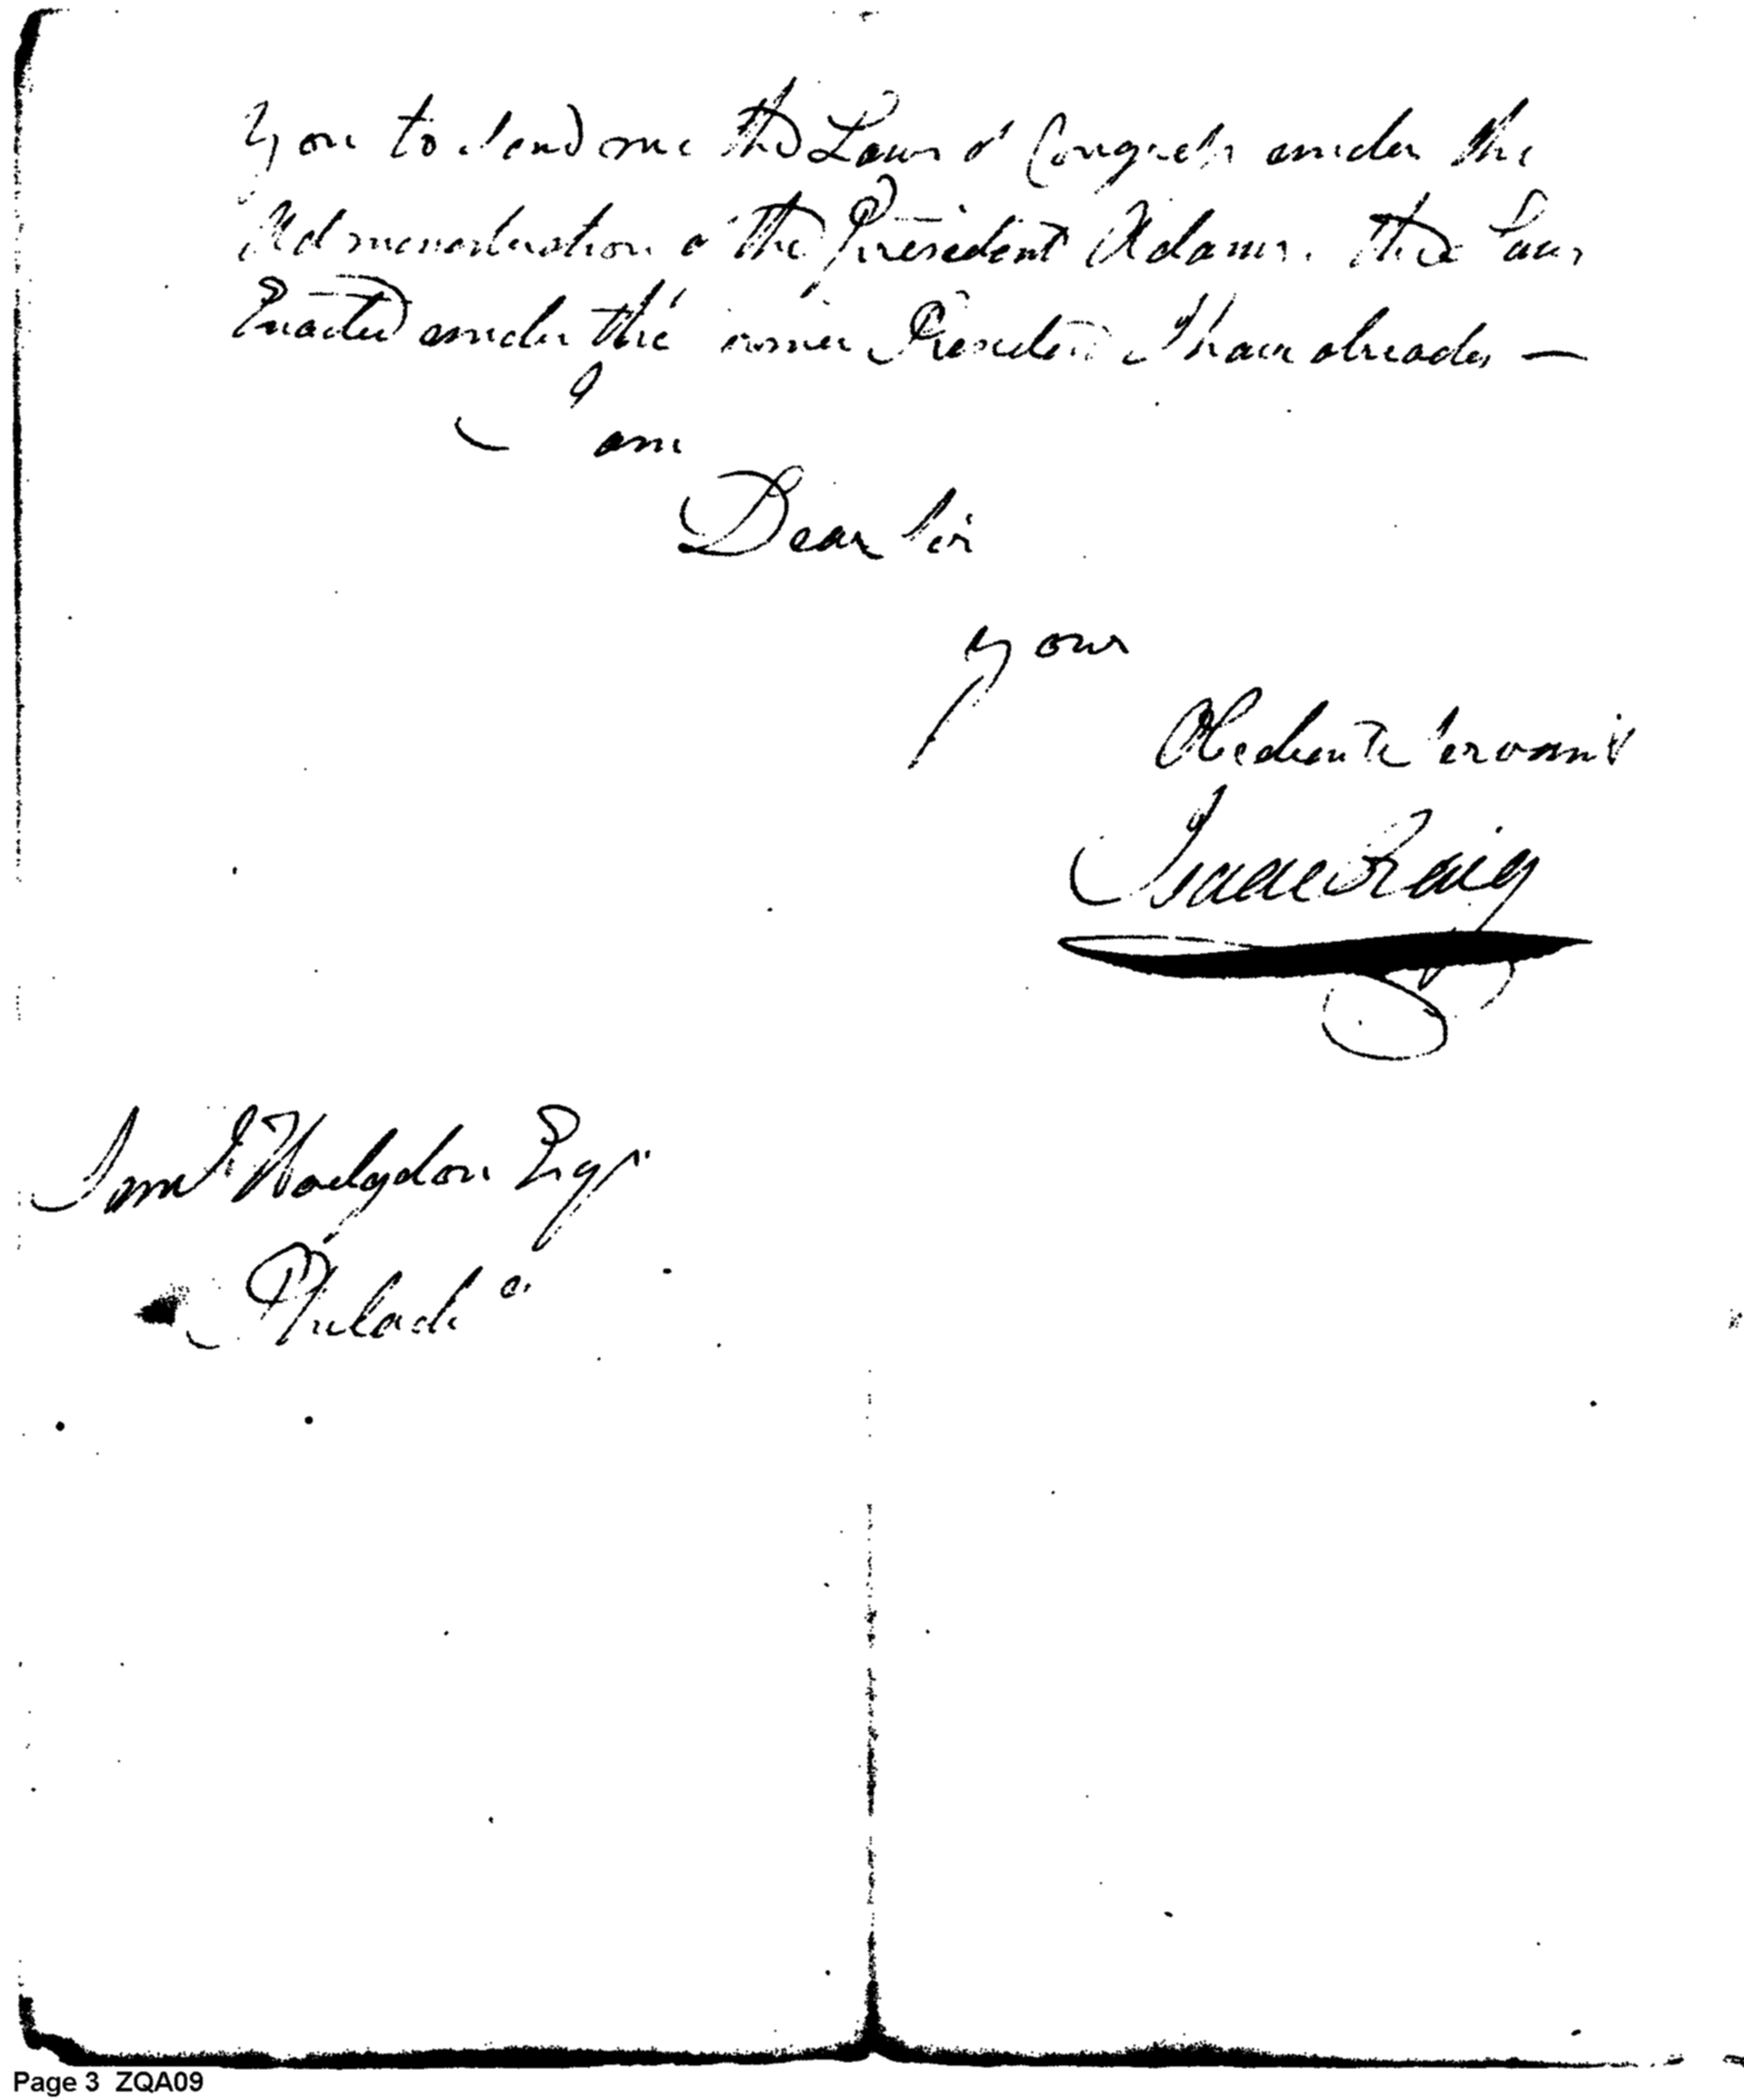 you to send me the Laws of Congress under the
Administration of the President Adams. the Laws
Enacted under the former President I have already —
I am
Dear Sir
your
Obedient Servant
Isaac Craig
Saml Hodgdon Esqr
Philada
Page 3 ZQA09